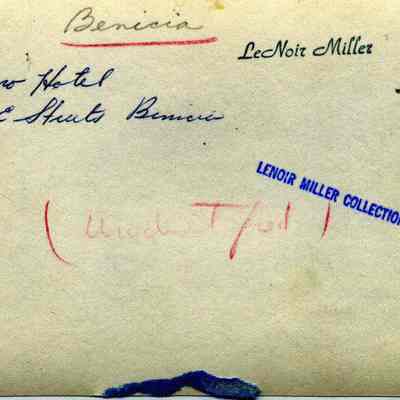 Benicia
LeNoir Miller
Hotel
E Streets Benicia
LENOIR MILLER COLLECTION